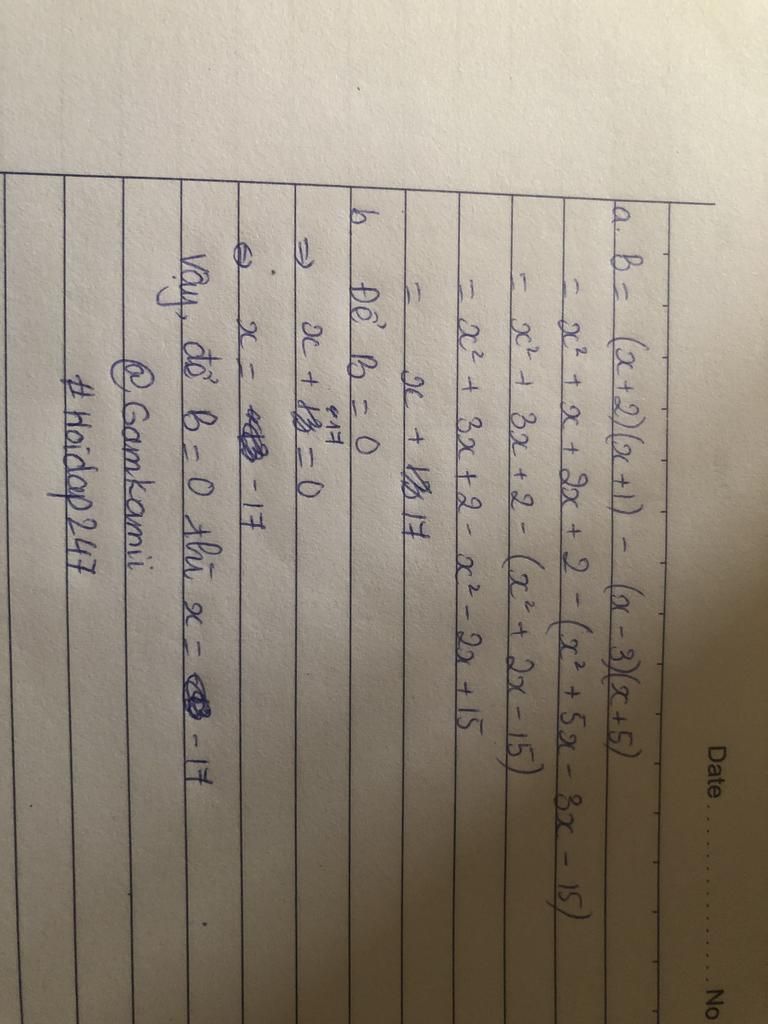 Date.................. No
a. B = (x+2)(x+1) - (x-3)(x+5)
= x² + x + 2x + 2 - (x² + 5x - 3x - 15)
= x² + 3x + 2 - (x² + 2x - 15)
= x² + 3x + 2 - x² - 2x + 15
= x + 17
b Để B = 0
=> x + 17 = 0
⇔ x = -17
Vậy, để B = 0 thì x = -17
@Gamkamii
#Hoidap247